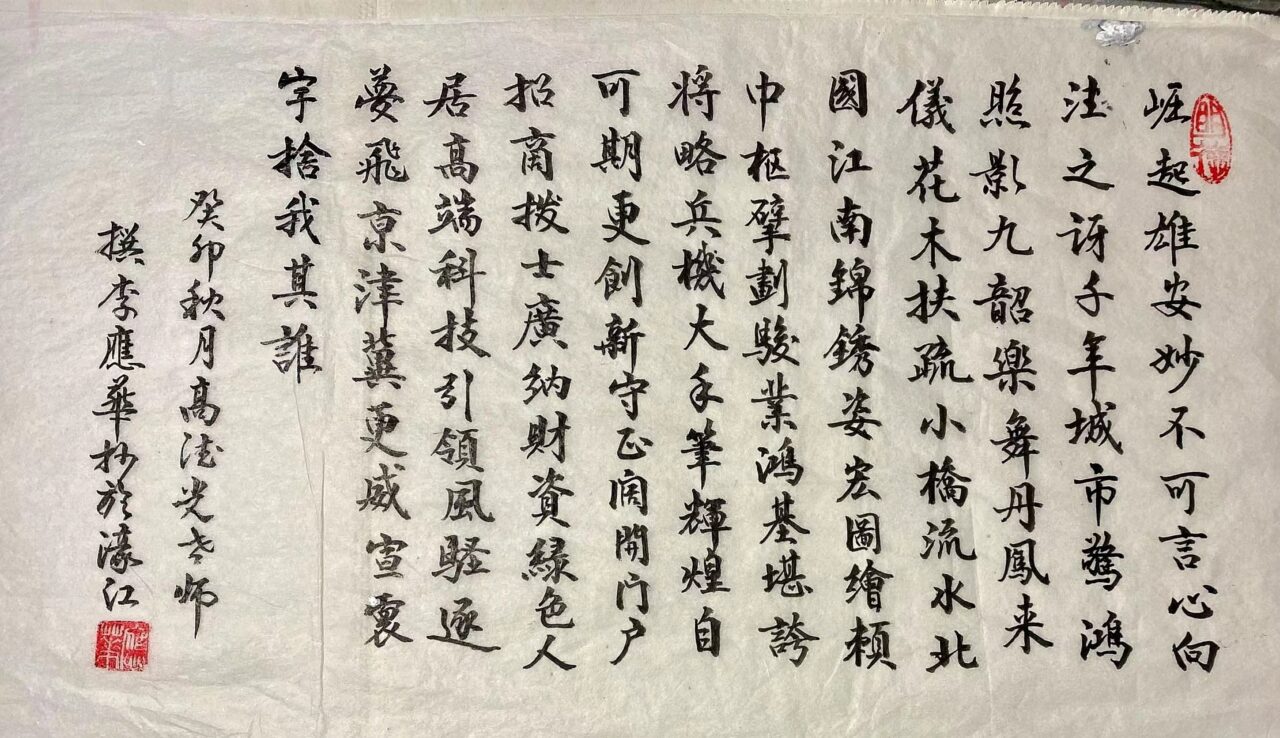 崛起雄安妙不可言心向
往之訝千年城市驚鴻
照影九韶樂舞丹鳳来
儀花木扶疏小橋流水北
國江南錦銹姿宏圖繪頼
中枢擘劃駿業鴻基堪誇
将略兵機大手筆輝煌自
可期更創新守正闊開门户
招商拨士廣纳財資緑色人
居高端科技引領風騷逐
夢飛京津蓂更威宣寰
宇捨我其誰
癸卯秋月高德光老师
撰李應華抄於濠江